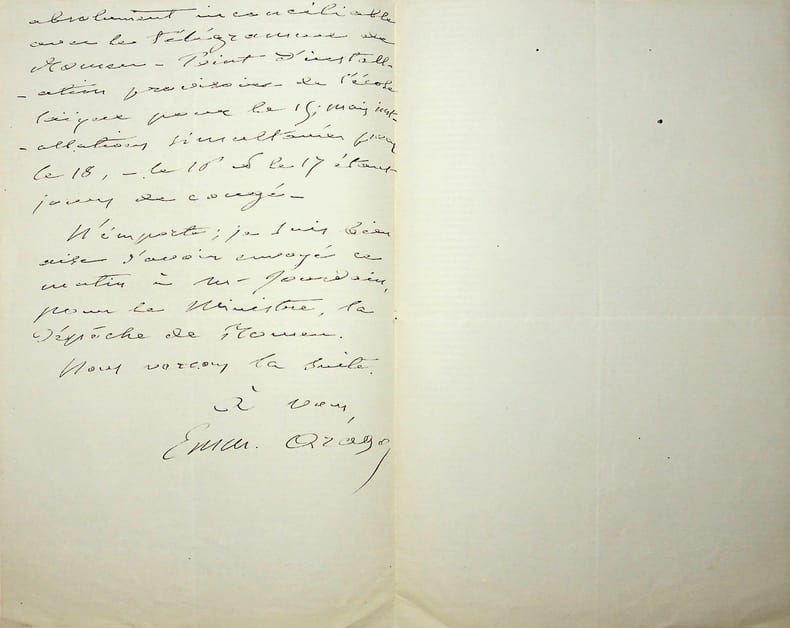 absolument inconciliable
avec le télégramme de
Momen - Point d'install-
-ation provisoire de l'école
laïque pour le 15; mais inst-
-allations simultanées pour
le 18, - le 16 & le 17 étant
jours de congé -
N'importe; je suis bien
aise d'avoir envoyé ce
matin à Mr Jourdain,
pour le Ministre, la
dépêche de Momen.
Nous verrons la suite.
À vous,
Emm. Arago